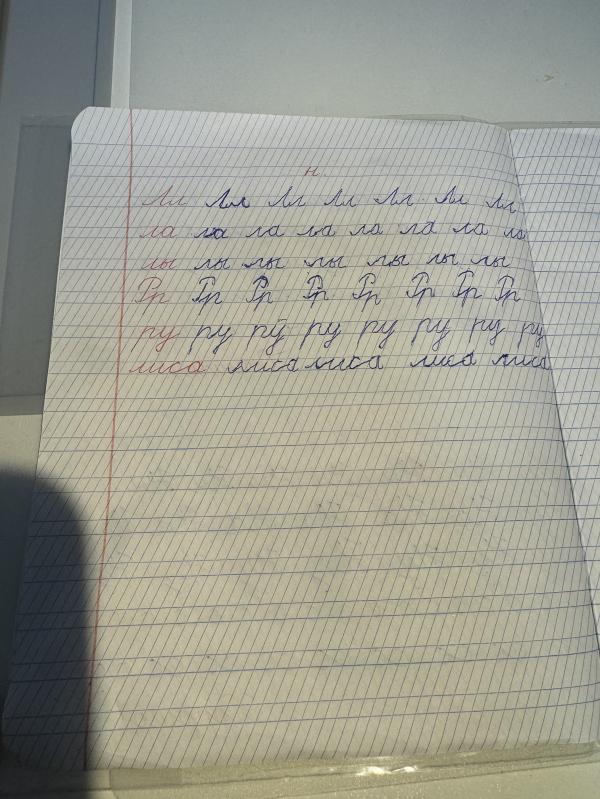 н.
Лл Лл Лл Лл Лл Лл Лл
ла ла ла ла ла ла ла ла
лы лы лы лы лы лы лы
Рр Рр Рр Рр Рр Рр Рр Рр
ру ру ру ру ру ру ру ру
лиса лиса лиса лиса лиса